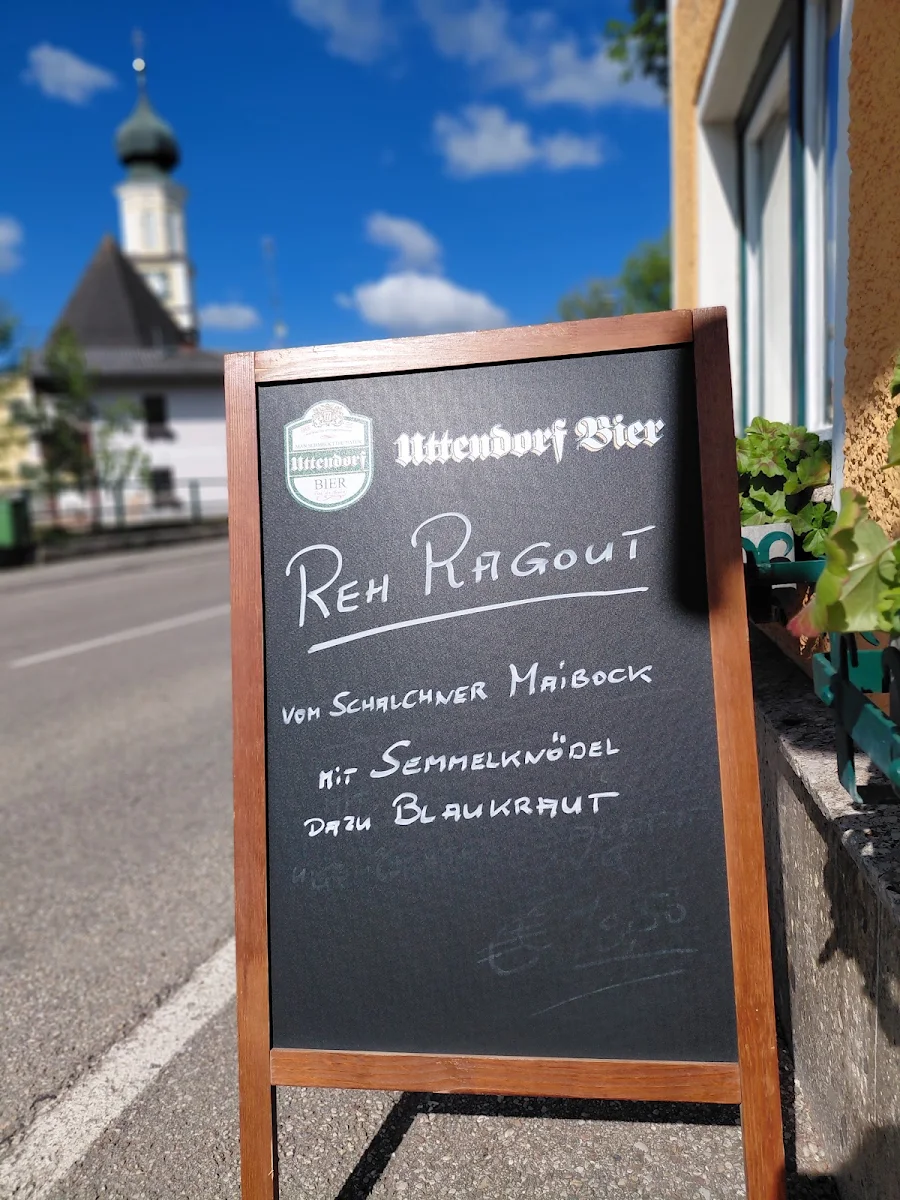 Uttendorf
BIER
Uttendorf Bier
REH RAGOUT
VOM SCHALCHNER MAIBOCK
MIT SEMMELKNÖDEL
DAZU BLAUKRAUT
€